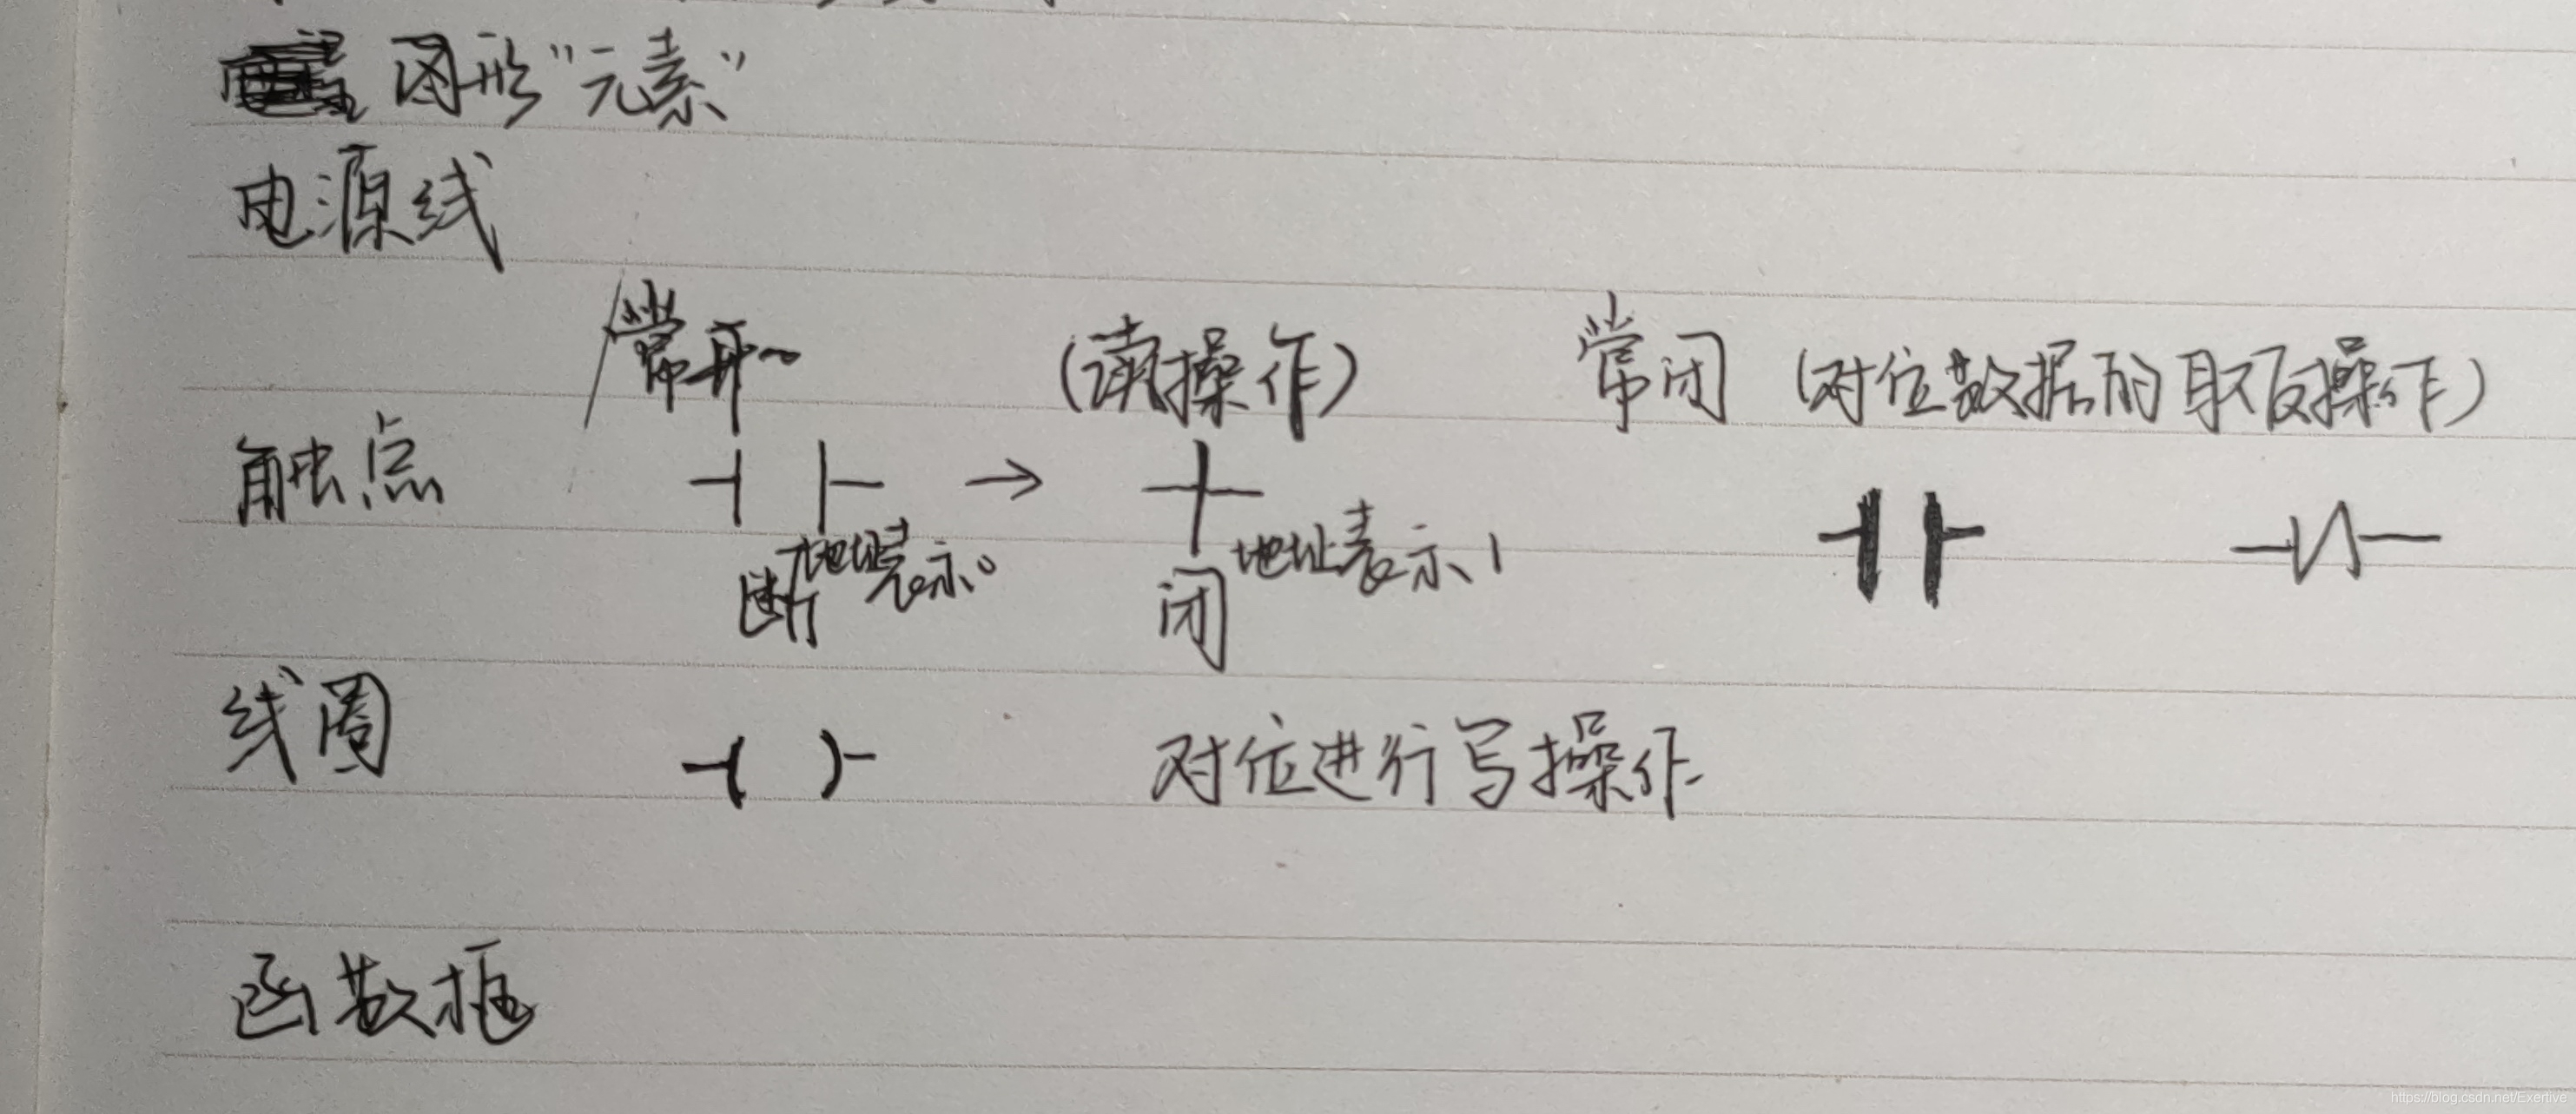 图形"元素"
电源线
常开 (读操作) 常闭 (对位数据的取反操作)
触点
地址表示0 地址表示1
断 闭
线圈 对位进行写操作
函数框
https://blog.csdn.net/Exertive